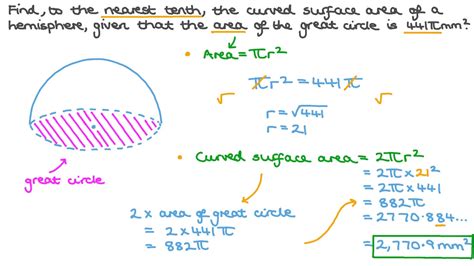 Find, to the nearest tenth, the curved surface area of a
hemisphere, given that the area of the great circle is 441π mm².
• Area = πr²
πr² = 441π
√ √
r = √441
r = 21
great circle
• Curved surface area = 2πr²
= 2π × 21²
= 2π × 441
= 882π
= 2770.884...
= 2,770.9 mm²
2 × area of great circle
= 2 × 441π
= 882π